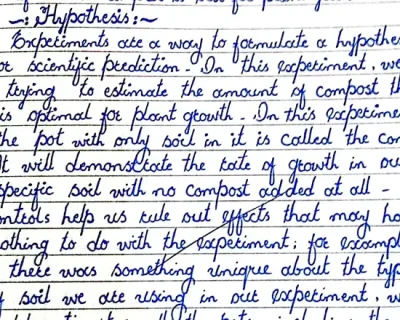 ~: Hypothesis:~
Experiments are a way to formulate a hypothe
or scientific prediction - In this experiment, we
trying to estimate the amount of compost th
is optimal for plant growth - In this experime
the pot with only soil in it is called the con
It will demonstrate the rate of growth in our
specific soil with no compost added at all -
ontrols help us rule out effects that may ha
othing to do with the experiment; for exampl
there was something unique about the typ
f soil we are using in our experiment, w